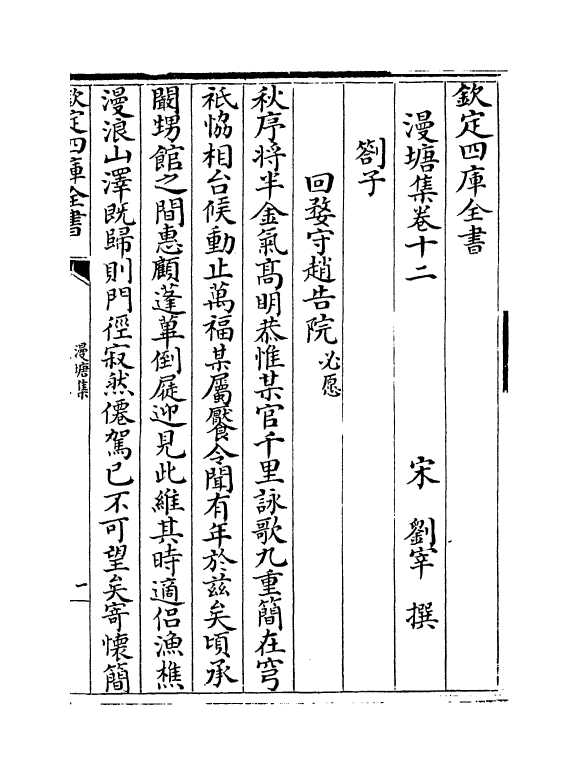 欽定四庫全書
漫塘集卷十二　宋　劉宰　撰
劄子
回婺守趙告院必愿
秋序將半金氣髙明恭惟某官千里詠歌九重簡在穹
祇恊相台候動止萬福某屬饜令聞有年於兹矣頃承
闢甥館之間惠顧蓬蓽倒屣迎見此維其時適侣漁樵
漫浪山澤既歸則門徑寂然僊駕已不可望矣寄懐簡
欽定四庫全書
漫塘集
一